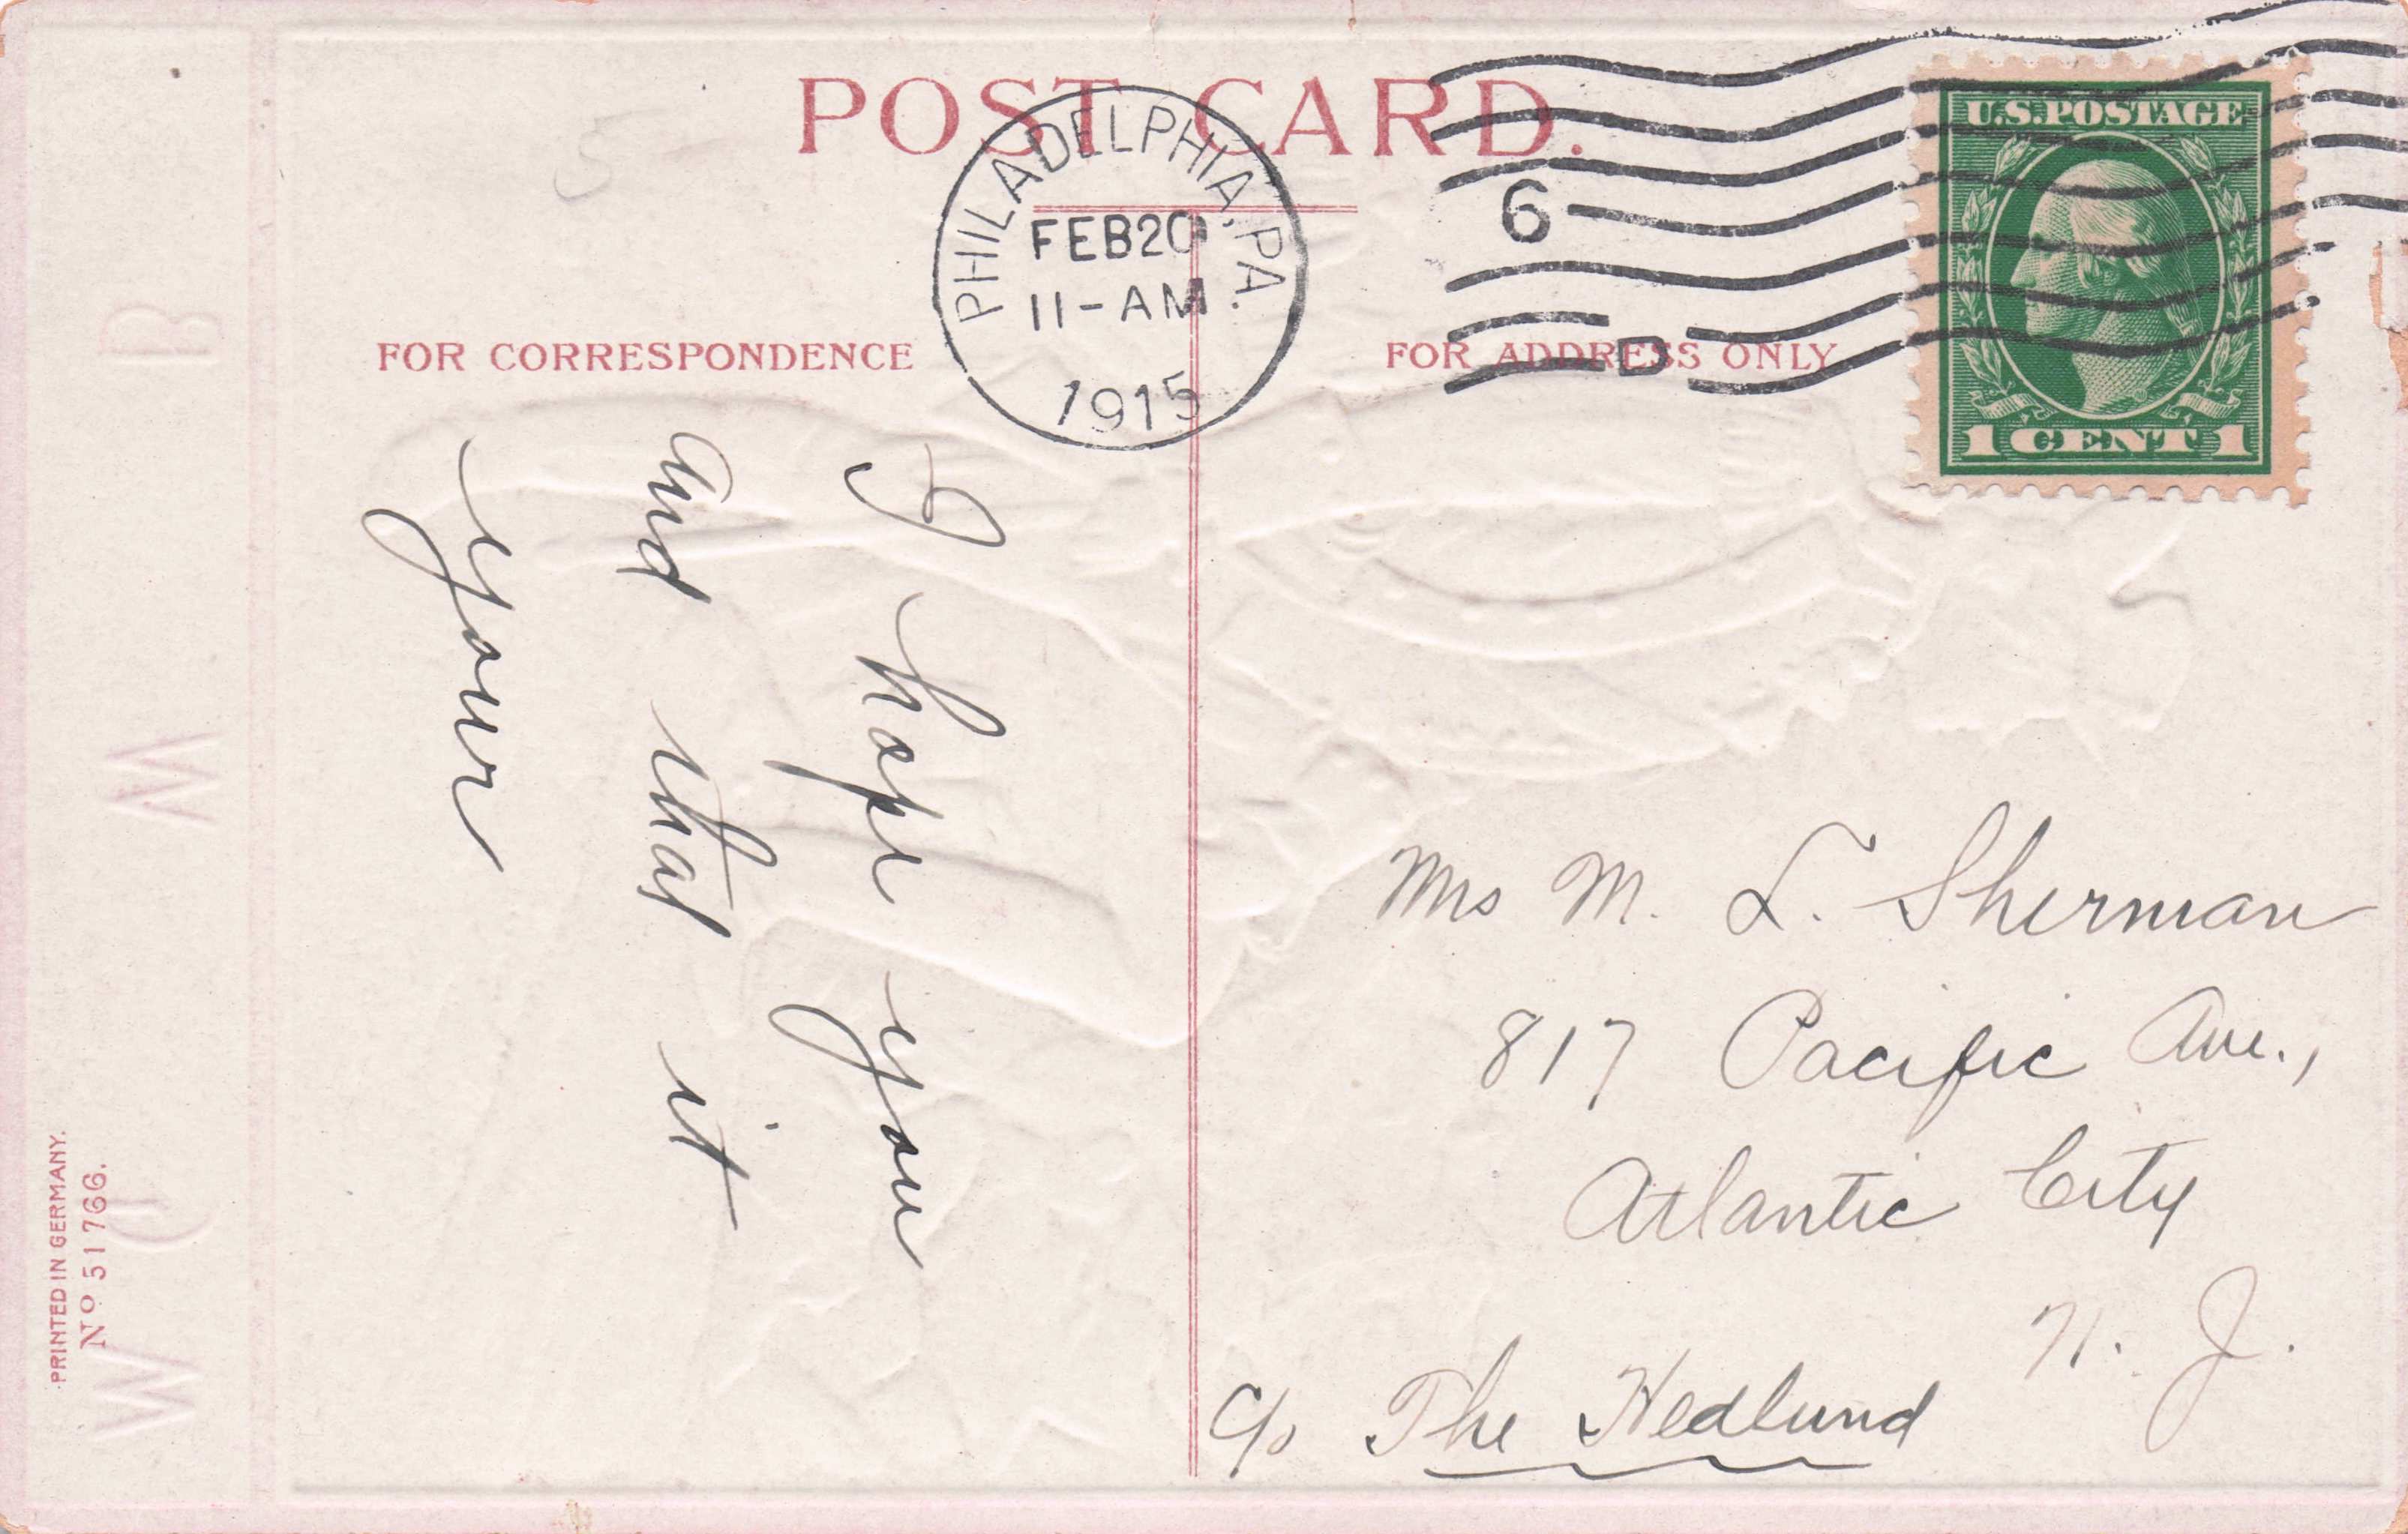 POST CARD.
PHILADELPHIA, PA.
FEB 20
11-AM
1915
6
D
U.S. POSTAGE
1 CENT 1
FOR CORRESPONDENCE
FOR ADDRESS ONLY
I hope you
and that it
your
Mrs M. L. Sherman
817 Pacific Ave.,
Atlantic City
N. J.
c/o The Hedlund
PRINTED IN GERMANY.
Nº 51766.